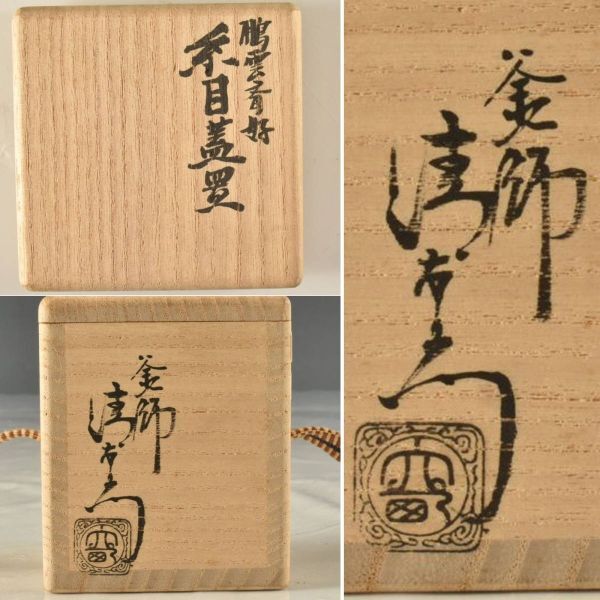 鵬雲斎好
糸目蓋置
釜師
清右衛門
釜師
清右衛門